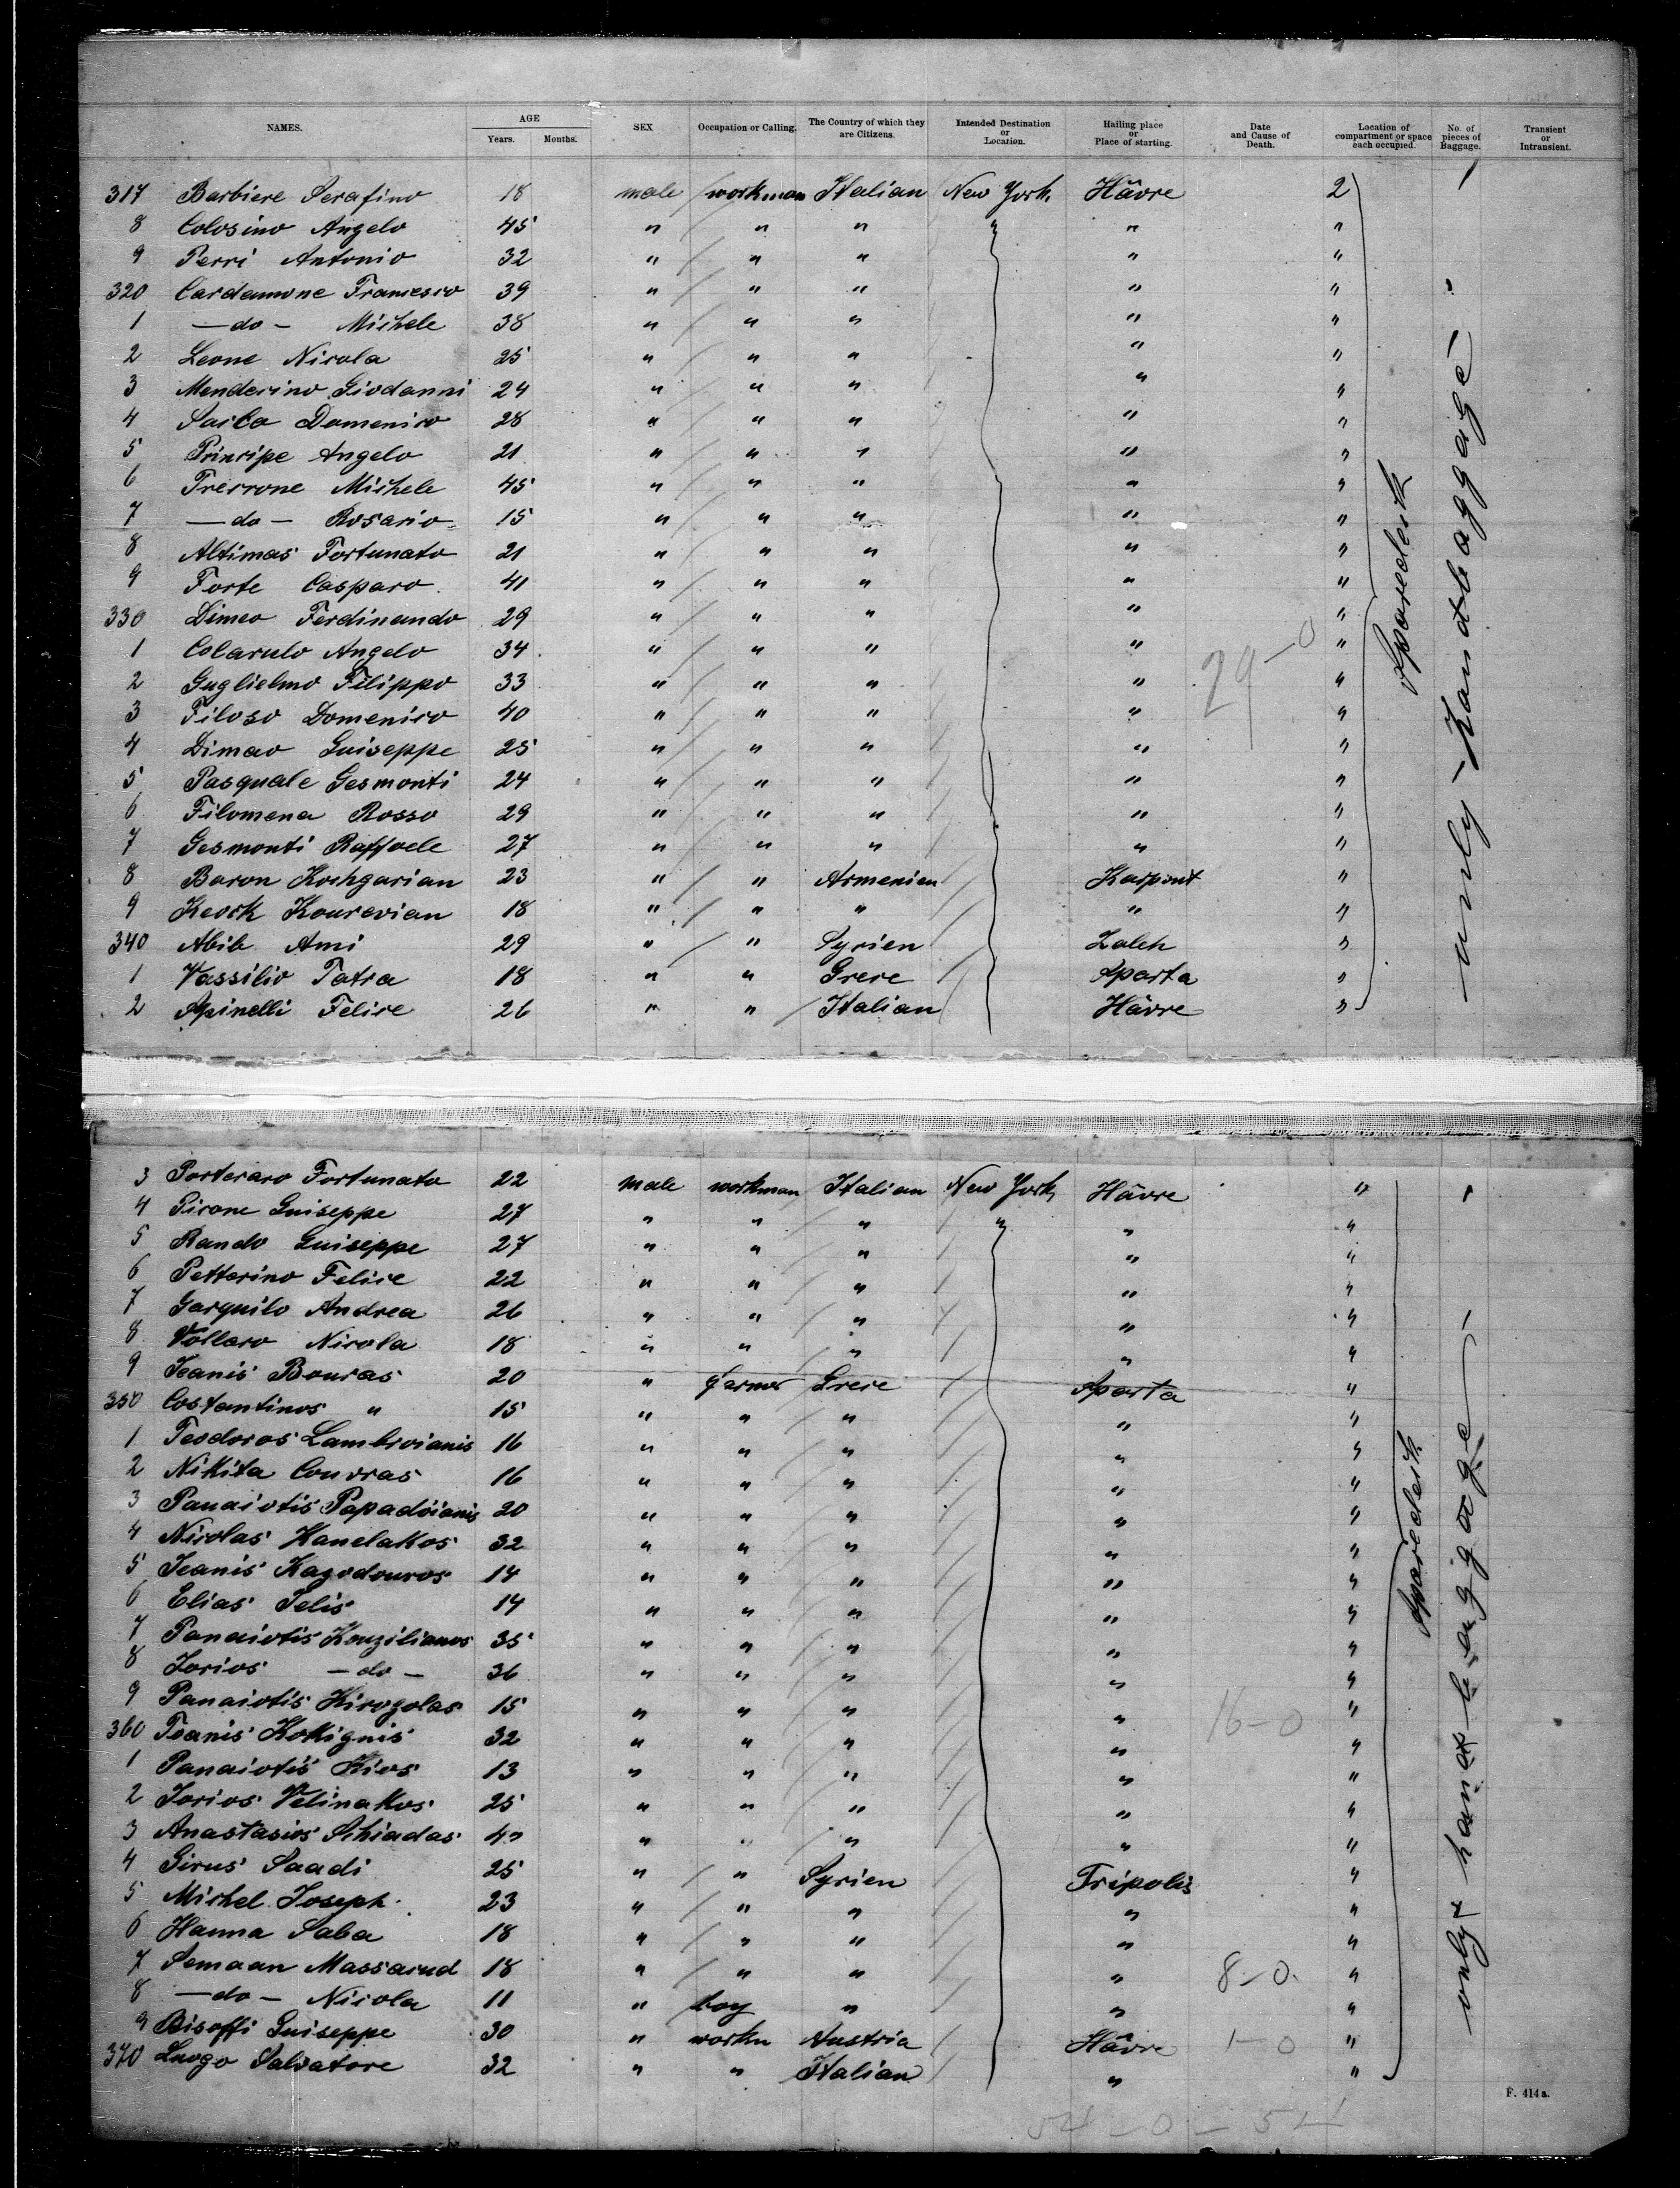 NAMES. AGE Years. Months. SEX Occupation or Calling. The Country of which they are Citizens. Intended Destination or Location. Hailing place or Place of starting. Date and Cause of Death. Location of compartment or space each occupied. No. of pieces of Baggage. Transient or Intransient.
317 Barbiere Serafino 18 male workman Italian New York Hâvre 2
8 Colosino Angelo 45 " " " " " "
9 Perri Antonio 32 " " " " "
320 Cardamone Francesco 39 " " " " "
1 —do— Michele 38 " " " " "
2 Leone Nicola 25 " " " " "
3 Menderino Giodanni 24 " " " " "
4 Domenico 28 " " " " "
5 Principe Angelo 21 " " " " "
6 Michele 45 " " " " "
7 —do— Rosario 15 " " " " "
8 Altimas Fortunato 21 " " " " "
9 Forte Casparo 41 " " " " "
330 Dimeo Ferdinando 29 " " " " "
1 Colarulo Angelo 34 " " " " "
2 Guglielmo Filippo 33 " " " " 29-0 "
3 Filoso Domenico 40 " " " " "
4 Dimao Guiseppe 25 " " " " "
5 Pasquale Gesmonti 24 " " " " "
6 Filomena Rosso 29 " " " " "
7 Gesmonti Raffaele 27 " " " " "
8 Baron Kochgarian 23 " " Armenien Karpout "
9 Keork Kourevian 18 " " " " "
340 Abib Ami 29 " " Syrien Zaleh "
1 Vassilio Tatra 18 " " Grece Sparta "
2 Spinelli Felice 26 " " Italian Hâvre "
Sparedeck
only - handbaggage -
3 Porteraro Fortunato 22 male workman Italian New York Hâvre "
4 Picone Guiseppe 27 " " " " " "
5 Rando Guiseppe 27 " " " " "
6 Petterino Felice 22 " " " " "
7 Garguilo Andrea 26 " " " " "
8 Vollaro Nicola 18 " " " " "
9 Jeanis Bouras 20 " farmer Grece Sparta "
350 Costantinos " 15 " " " " "
1 Teodoros Lambroianis 16 " " " " "
2 Nikita Couvras 16 " " " " "
3 Panaiotis Papadoianis 20 " " " " "
4 Nicolas Kanelakos 32 " " " " "
5 Jeanis Kagodouros 14 " " " " "
6 Elias Selis 14 " " " " "
7 Panaiotis Kouzilianos 35 " " " " "
8 Jorios —do— 36 " " " " "
9 Panaiotis Kirogolas 15 " " " " 16-0 "
360 Jeanis Kokignis 32 " " " " "
1 Panaiotis Kios 13 " " " " "
2 Jorios Velinakos 25 " " " " "
3 Anastasios Schiadas " " " " "
4 Girus Saadi 25 " " Syrien Tripolis "
5 Michel Joseph 23 " " " " "
6 Hanna Saba 18 " " " " "
7 Semaan Massaud 18 " " " " 8-0. "
8 —do— Nicola 11 " boy " " "
9 Bisoffi Guiseppe 30 " workn Austria Hâvre 1-0 "
370 Luogo Salvatore 32 " " Italian " "
Sparedeck
only hand baggage -
F. 414 a.
54-0-54